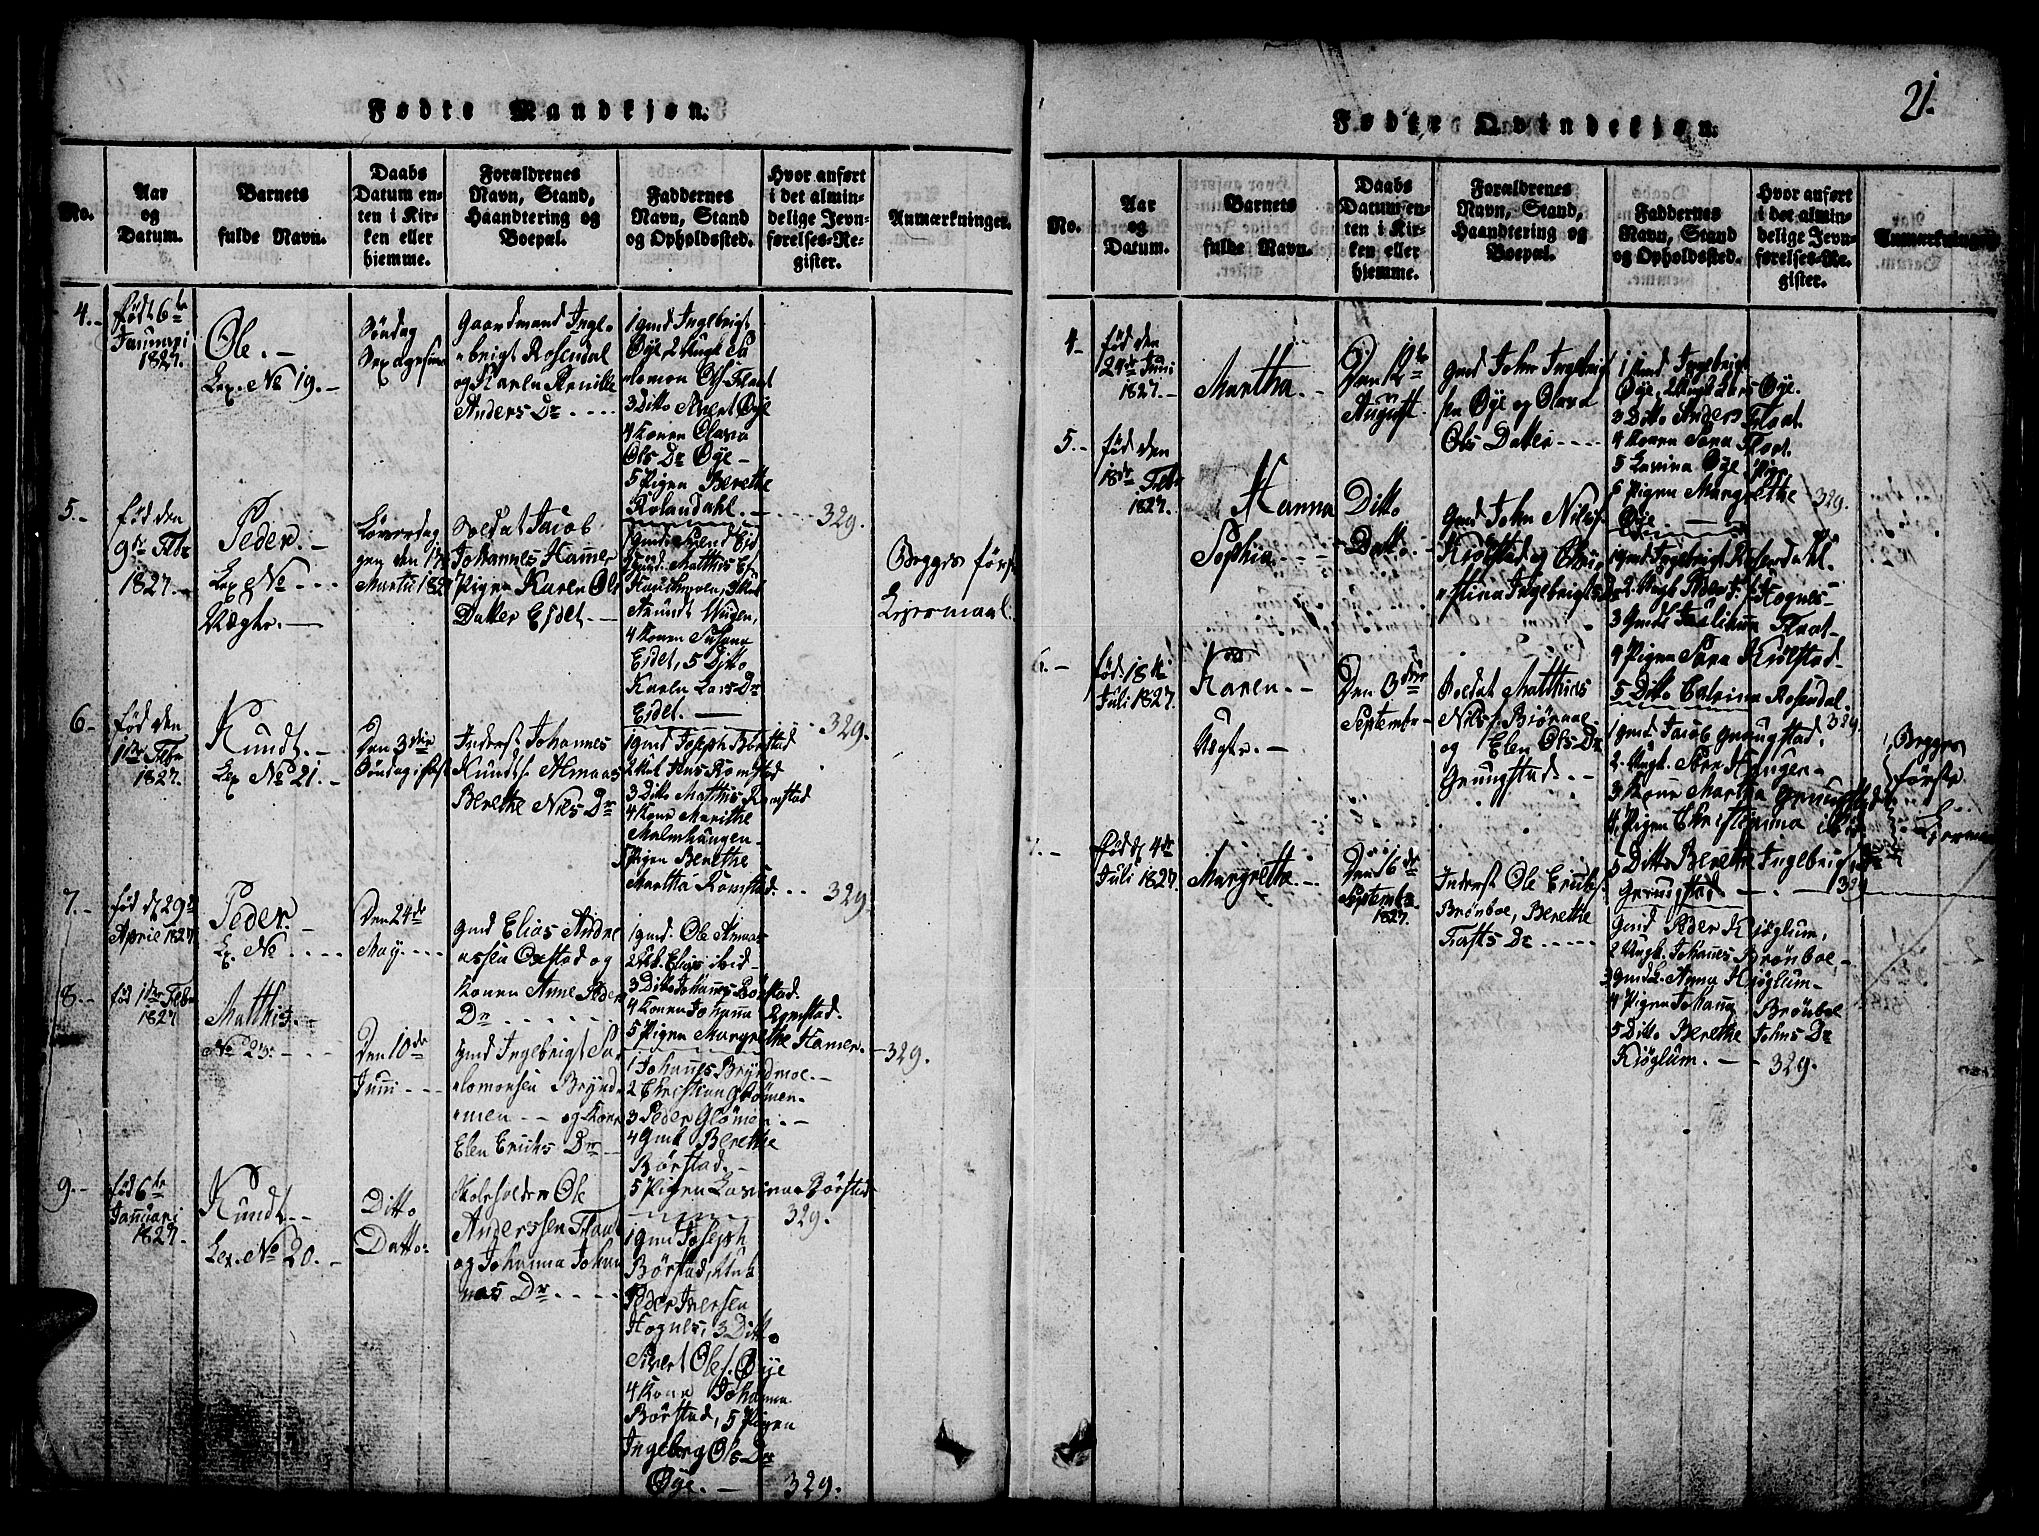 21.
Fødte Mandkjøn.
No.
Aar
og
Datum.
Barnets
fulde Navn.
Daabs
Datum en-
ten i Kir-
ken eller
hjemme.
Forældrenes
Navn, Stand,
Haandtering og
Boepæl.
Faddernes
Navn, Stand
og Opholdssted.
Hvor anført
i det almin-
delige Jevn-
førelses-Re-
gister.
Anmærkninger.
4.-
fød 6te
Januari
1827.
Ole.-
Lex. No 19.-
Søndag
Gaardmand Ingl-
ebrigt Rosendal
og Karen Pernille
Anders Dr.
1 gmd Ingebrigt
Øye, 2 Ungk Sa
lomon Ols. Flaat
3 Ditto Sivert Øye
4 Konen Olava
Ols Dr Øye-
5 Pigen Berethe
Rolandahl.-
329.
5.-
fød den
9de Febr
1827.-
Peder.-
Lex No
Uægte.-
Løverda
gen den 17
Martii 182
Soldat Jacob
Johannes Hamer
Pigen Karen Ols
Datter Eidet.-
1 gmd Svend Eid
4 Konen Susana
Eidet, 5 Ditto
Karen Lars Dr
Eidet.-
329.
Begges først
Leiermaal.
6.-
fød den
1ste Febr
1827.-
Kundt.-
Lex No 21.-
Den 3die
Søndag i fast
Inderst Johannes
Kundts. Almaas
Berethe Nils Dr
1 gmd Joseph Børstad
2 Jens Romstad
3 Ditto Matthis Romstad
4 Kone Marithe
Malmhaugen-
5 Pigen Berethe
Martha Romstad.
329.
7.-
fød d 29de
April 1827
Peder.-
Lex. No
Den 24de
May.
gmd Elias Andre
assen Oxstad og
Konen Anne Peder
Dr
1 gmd. Ole Almaas
2 Elias
3 Ditto Johanes Børstad.
4 Konen Johanna Romstad.
5 Pigen Margrethe Hamer.
329.
8.-
fød 1ste Febr
1827
Matthis.-
No 23.-
Den 10de
Juni
gmd Ingebrigt Sa
lomonsen Brynd
men - og Kone
Elen Erichs Dr
1 Johanes Bryndmoe.-
2 Christian Glømen.
3 Peder Glømen.-
4 Gmk Berethe
Børstad.-
5 Pigen Lavina Børstad
329.
9.-
fød 6te
Januari
1827.
Kundt.-
Lex. No 20.-
Ditto
Datto.
Skoleholder Ole
Anderssen Flaat
og Johanna Johan
nas Dr.
1 gmd Joseph
Børstad, 2 Ungk
Peder Iversen
Hognes, 3 Ditto
Sivert Ols. Øye
4 Kone Johanna
Børstad, 5 Pigen
Ingeberg Ols Dr
Øye.-
329.
Fødte Qvindekjøn.
No.
Aar
og
Datum.
Barnets
fulde Navn.
Daabs
Datum en-
ten i Kir-
ken eller
hjemme.
Forældrenes
Navn, Stand,
Haandtering og
Boepæl.
Faddernes
Navn, Stand
og Opholdssted.
Hvor anført
i det almin-
delige Jevn-
førelses-Re-
gister.
Anmærkninger.
4-
fød den
24de Juni
1827.-
Martha.-
Den 12te
August.
Gmd John Ingebrigt
sen Øye og Olava
Ols Datter
1 gmd Ingebrigt
Øye, 2 Ungk Lars Øye.
3 Ditto Anders Flaat.
4 Konen Sara Flaat.
5 Lavina Øye
5 Pigen Margrethe
Øye.-
329.
5.-
fød den
18de Febr
1827.
Hanna
Sophia.
Ditto
Datto.
Gmd John Nilss.
Kiølstad og Chri
stina Ingebrigts
Dr
1 gmd Ingebrigt Rosendahl.
2 Ungk Peder Hognes-
3 Gmds Flaat-
4 Pigen Sara Kiølstad-
5 Ditto Catrina Rosendal.
329.
6.-
fød 18de
Juli 1827
Karen.-
Uægte.-
Den 3die
September
Soldat Matthias
Nils. Bjøraae
og Elen Ols Dr
Grungstad.-
1 gmd Jacob Grungstad.
2 Ungk. Haugen-
3 Kone Martha Grungstad.
4 Pigen
5 Ditto Berethe Ingebrigts
Grungstad
329
Begges
første
Leierma
7.-
fød d 4de
Juli 1827.
Margretha.-
Den 16de
September
1827.
Inderst Ole Erichs.
Brønboe, Berethe
Tofts Dr.
1 Gmd Peder Kiøglum,
2 Ungk. Johanes Brønboe,-
3 Anna Kiøglum-
4 Pigen Johanna Brønboe
5 Ditto Berethe Johns Dr
Kiøglum.-
329.